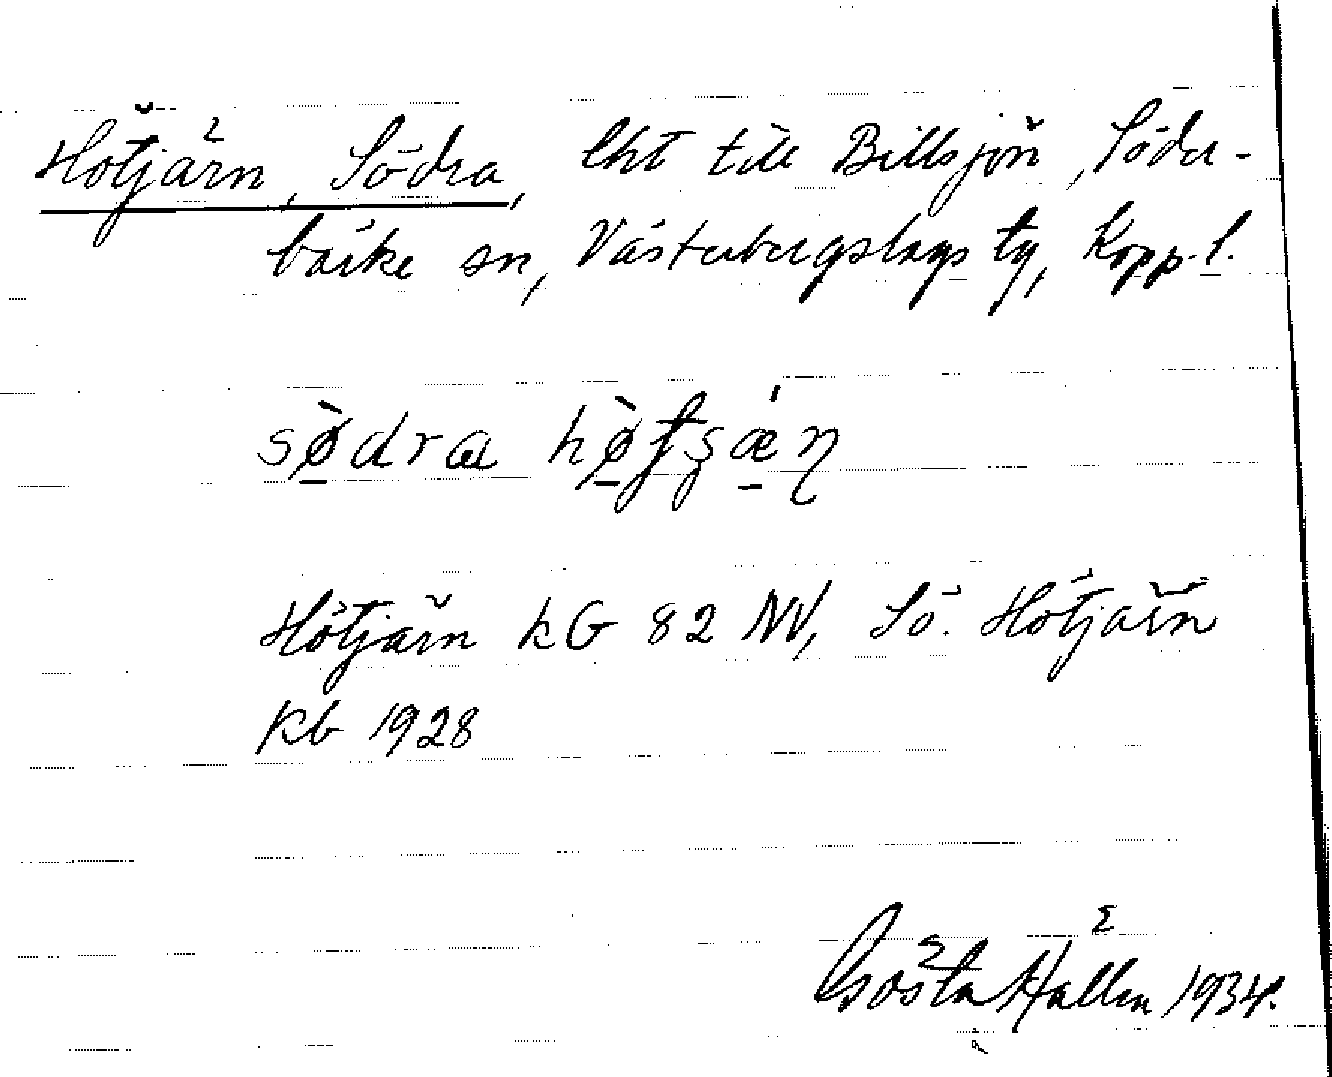 Hötjärn, Södra, lht till Billsjön, Söder-
bärke sn, Västerbergslags tg, Kopp. l.
södra
Hötjärn kG 82 NV, Sö. Hötjärn
Kb 1928
Gösta Hallén 1934.